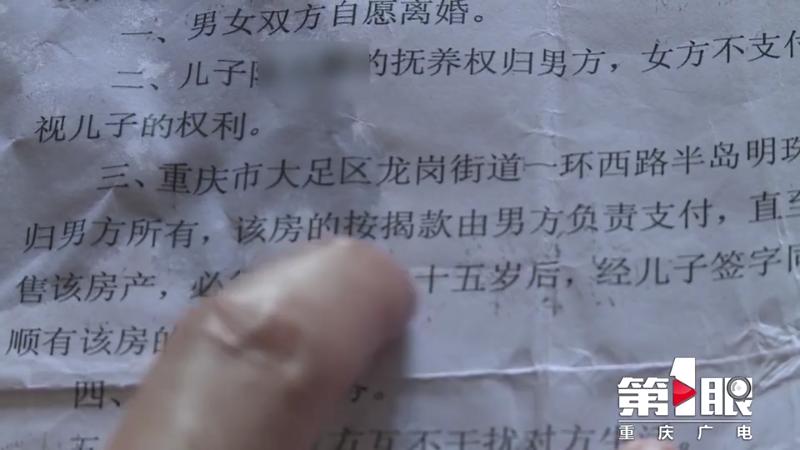 一、男女双方自愿离婚。
二、儿子 的抚养权归男方，女方不支付
视儿子的权利。
三、重庆市大足区龙岗街道一环西路半岛明珠
归男方所有，该房的按揭款由男方负责支付，直至
售该房产，必 十五岁后，经儿子签字同
顺有该房的
四、
五 方互不干扰对方生
第1眼
重庆广电